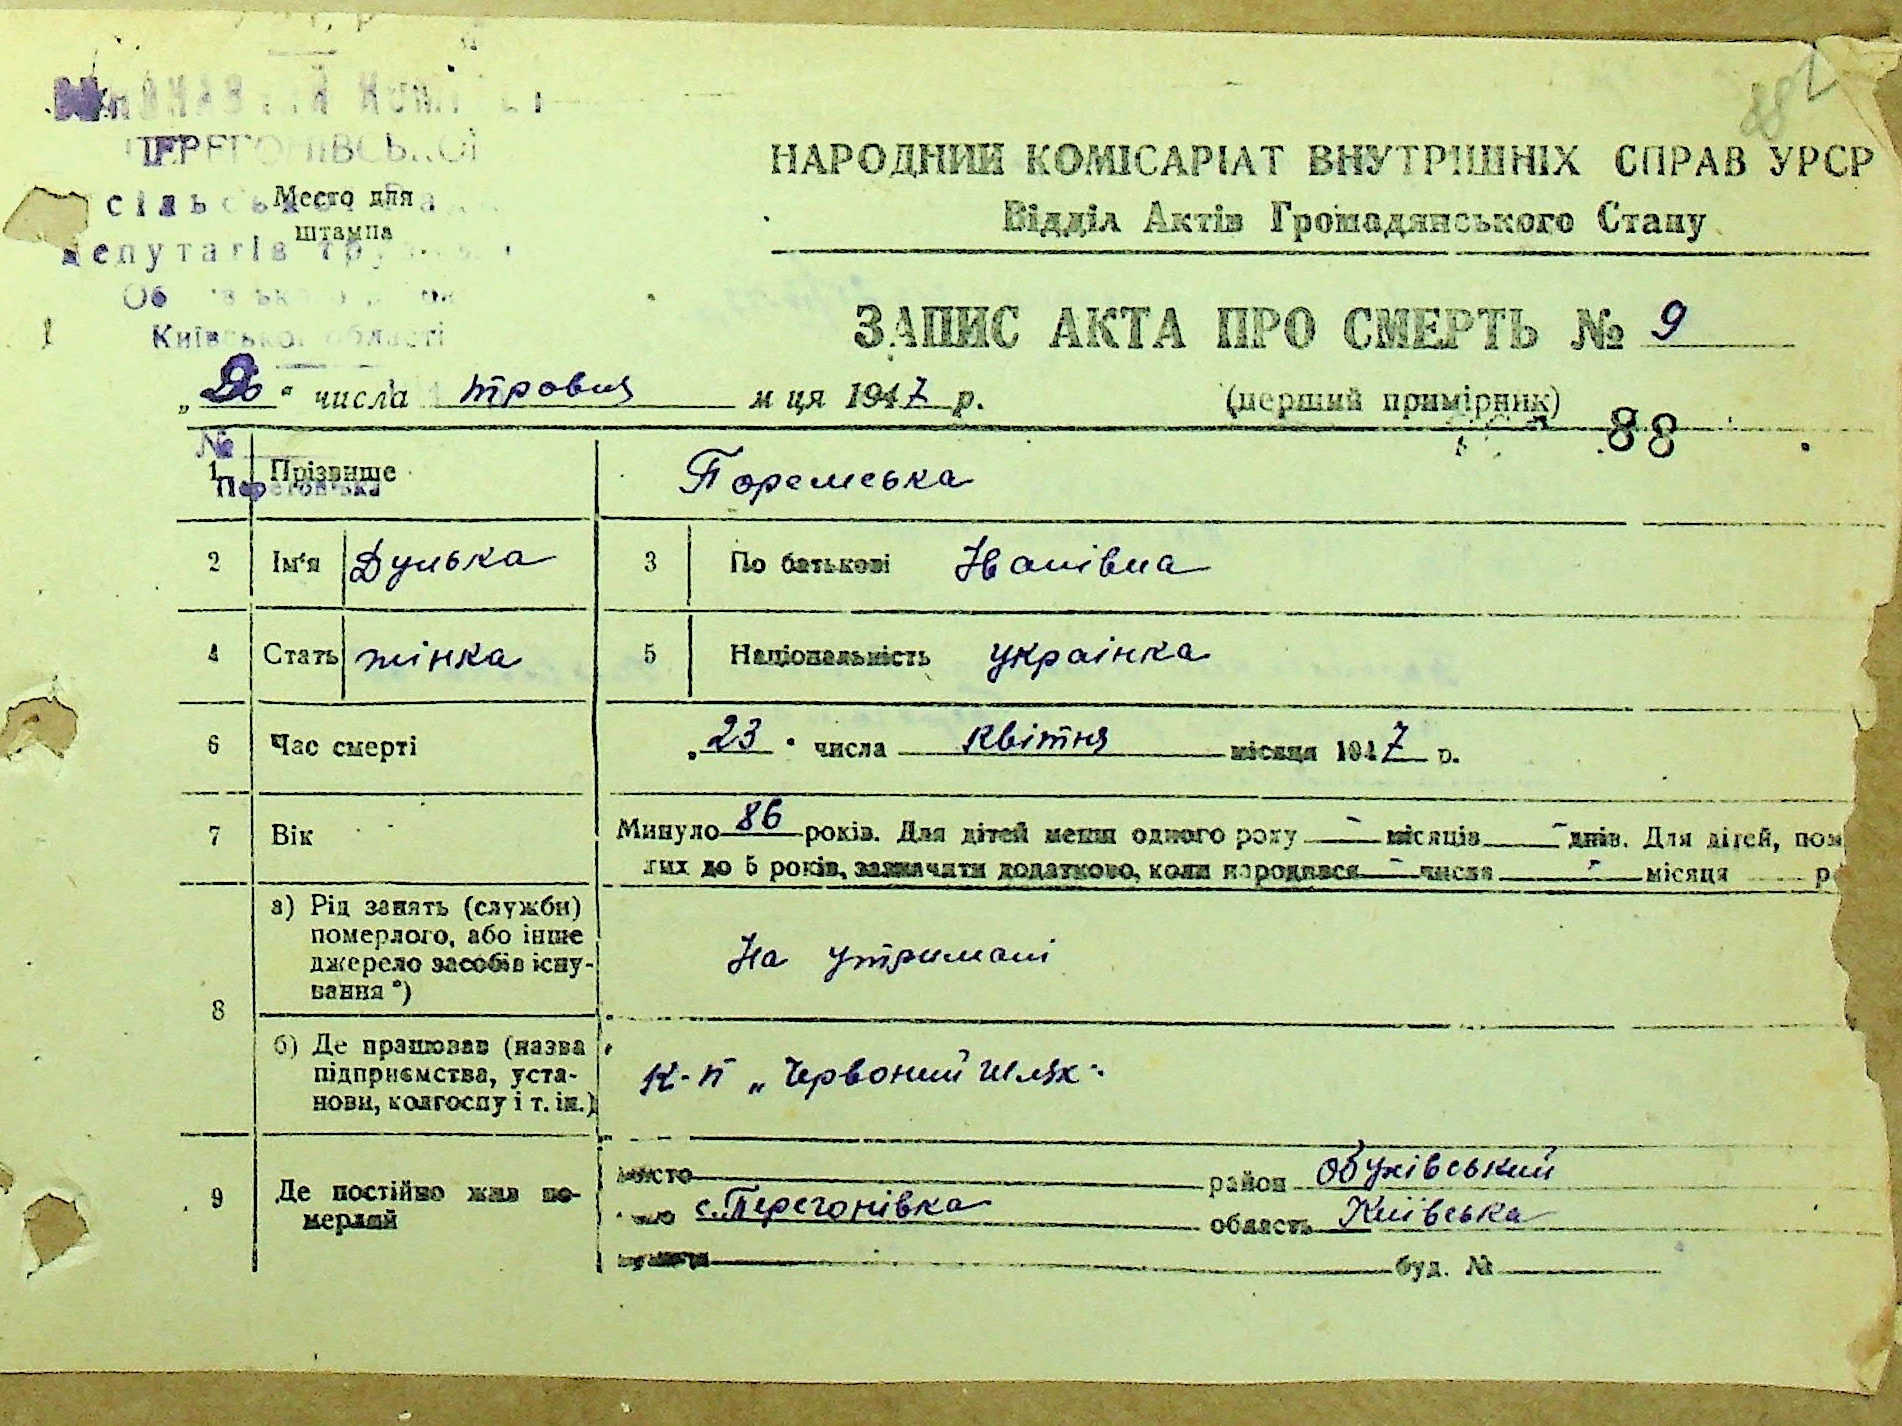 88
Виконавчий Комітет
ПЕРЕГОНІВСЬКОЇ
сільської Ради
Место для
штампа
депутатів трудящих
Київської області
НАРОДНИЙ КОМІСАРІАТ ВНУТРІШНІХ СПРАВ УРСР
Відділ Актів Громадянського Стану
ЗАПИС АКТА ПРО СМЕРТЬ № 9
" " числа травня м ця 1947 р. (перший примірник)
88
№
1 Прізвище Поремська
2 Ім'я Дунька 3 По батькові Іванівна
4 Стать жінка 5 Національність українка
6 Час смерті „23" числа квітня місяця 1947 р.
7 Вік Минуло 86 років. Для дітей менш одного року - місяців - днів. Для дітей, пом
лих до 5 років, зазначати додатково, коли народився - числа - місяця р
8 а) Рід занять (служби)
померлого, або інше
джерело засобів існу-
вання *)
На утримані
б) Де працював (назва
підприємства, уста-
нови, колгоспу і т. ін.)
К-п „Червоний шлях"
9 Де постійно жив по-
мерлий
місто район Обухівський
с. Перегонівка область Київська
буд. №